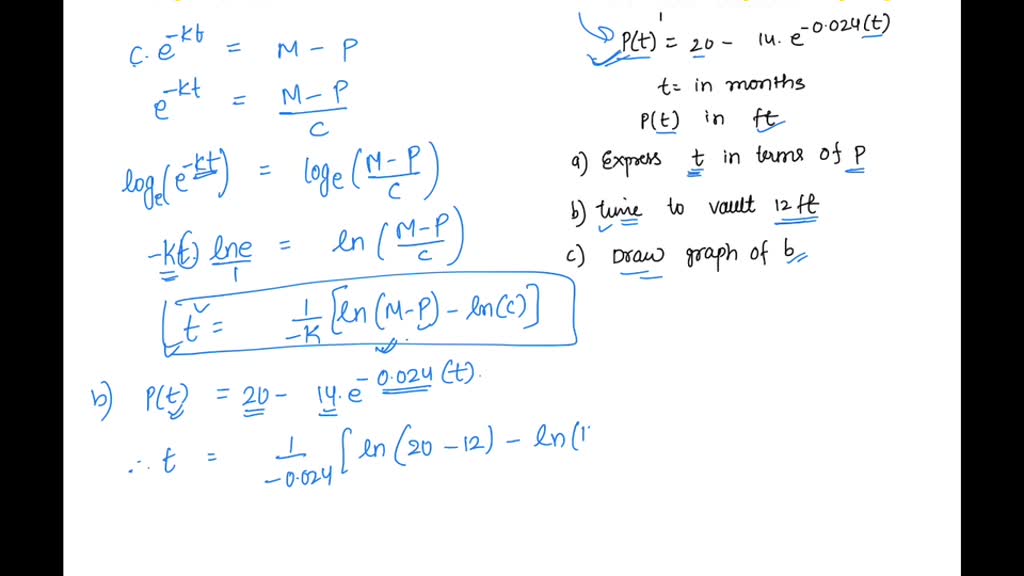 C. e^-kt = M - P
e^-kt = M - P / C
log_e(e^-kt) = log_e(M - P / C)
-k(t) lne / 1 = ln(M - P / C)
t = 1 / -K [ln(M-P) - ln(C)]
b) P(t) = 20 - 14. e^-0.024(t).
∴ t = 1 / -0.024 [ln(20 - 12) - ln(1
P(t) = 20 - 14. e^-0.024(t)
t = in months
P(t) in ft
a) Express t in terms of P
b) time to vault 12 ft
c) Draw graph of b